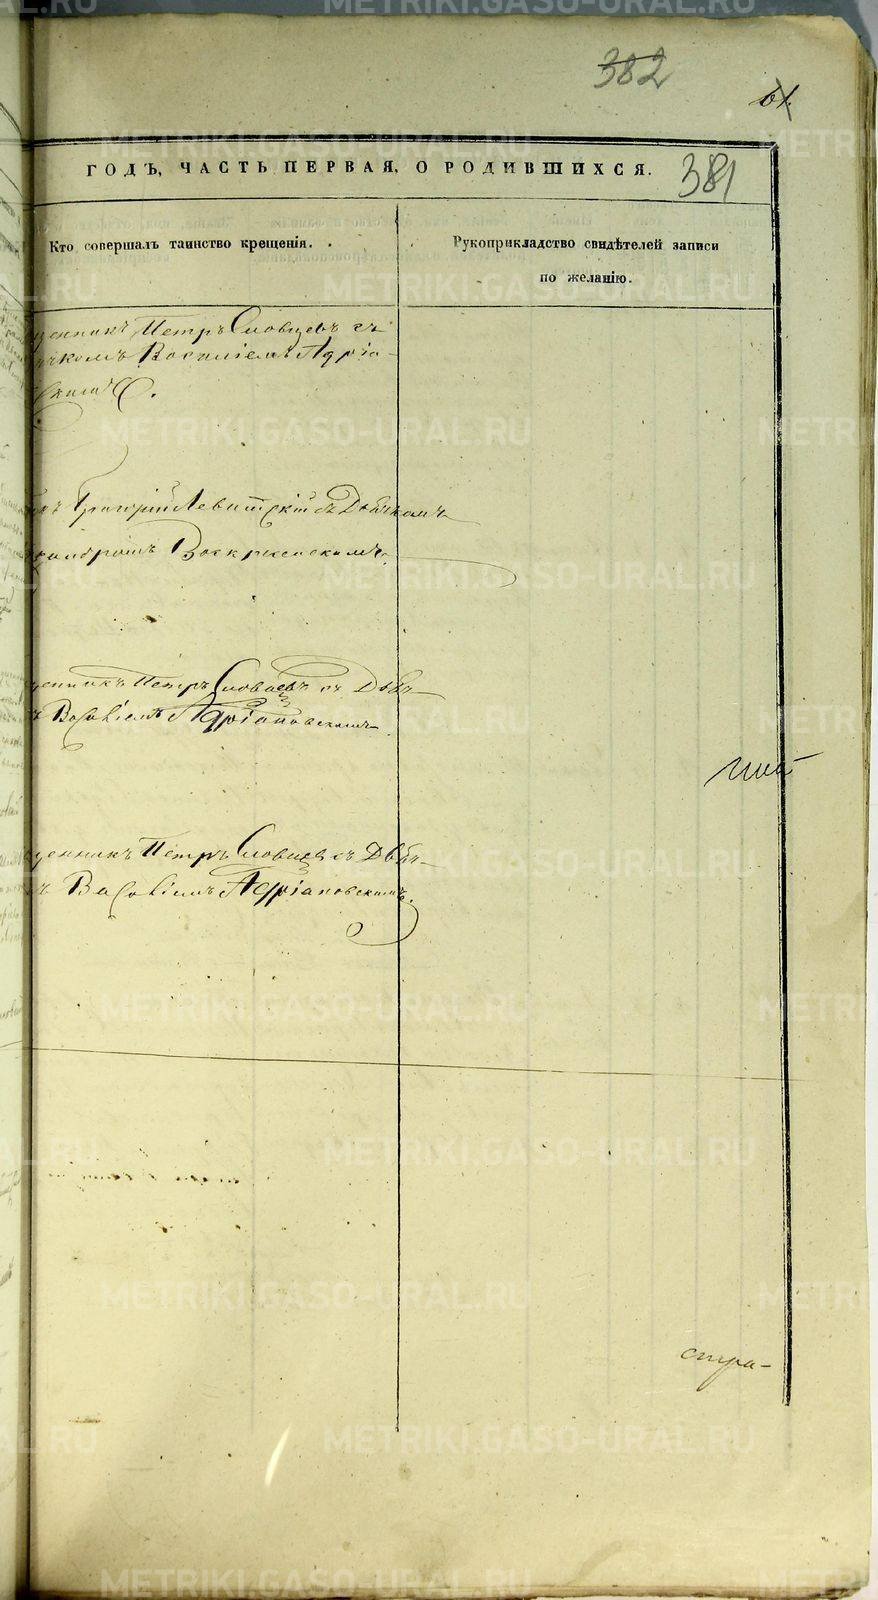 382
61.
ГОДЪ, ЧАСТЬ ПЕРВАЯ, О РОДИВШИХСЯ.
381
Кто совершалъ таинство крещенія.
Рукоприкладство свидѣтелей записи
по желанію.
щенникъ Петръ Словцевъ съ
чкомъ Василіемъ Адріа-
скимъ.
Григорій Левитскій съ Дьячкомъ
Воскресенскимъ.
щенникъ Петръ Словцевъ съ Дьяч-
ъ Василіемъ Адріановскимъ
щенникъ Петръ Словцевъ съ Дьяч-
ъ Василіемъ Адріановскимъ.
стра-
METRIKI.GASO-URAL.RU